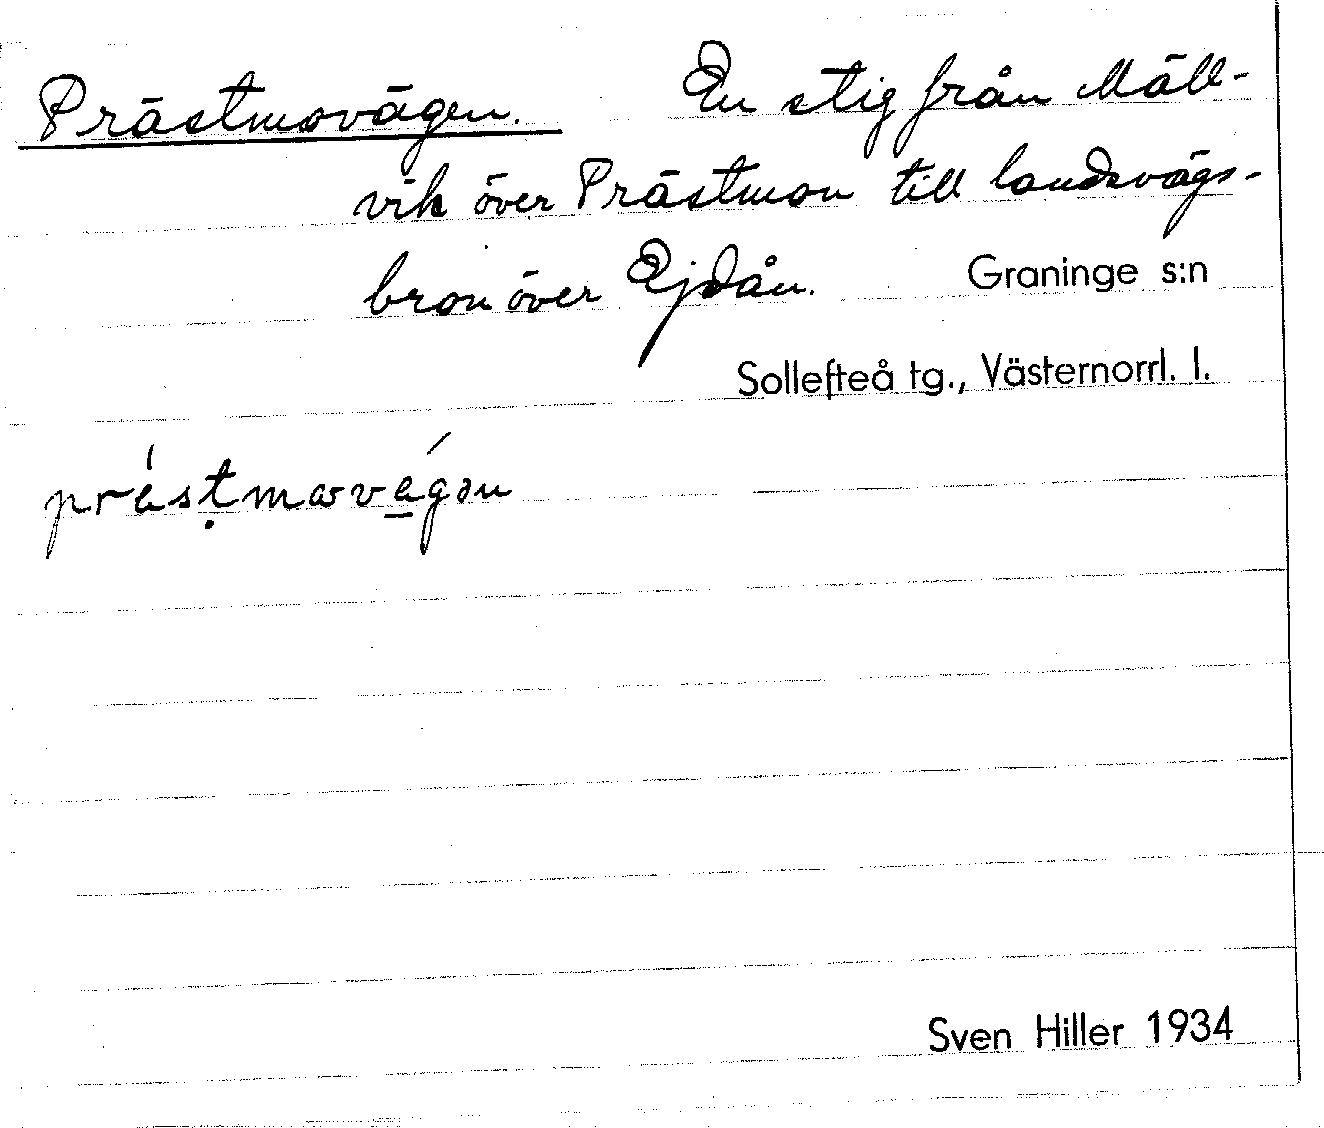 Prästmovägen. En stig från Mäll-
vik över Prästmon till landsvägs-
bron över Ejdån. Graninge s:n
Sollefteå tg., Västernorrl. l.
Sven Hiller 1934